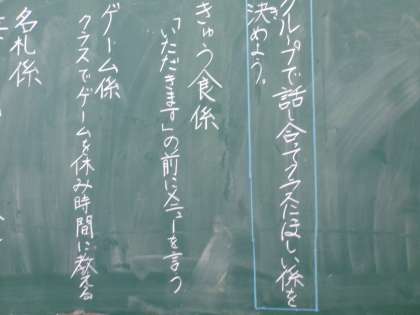 グループで話し合ってクラスにほしい係を
決めよう。
きゅう食係
「いただきます」の前にメニューを言う
ゲーム係
クラスでゲームを休み時間に教える
名札係